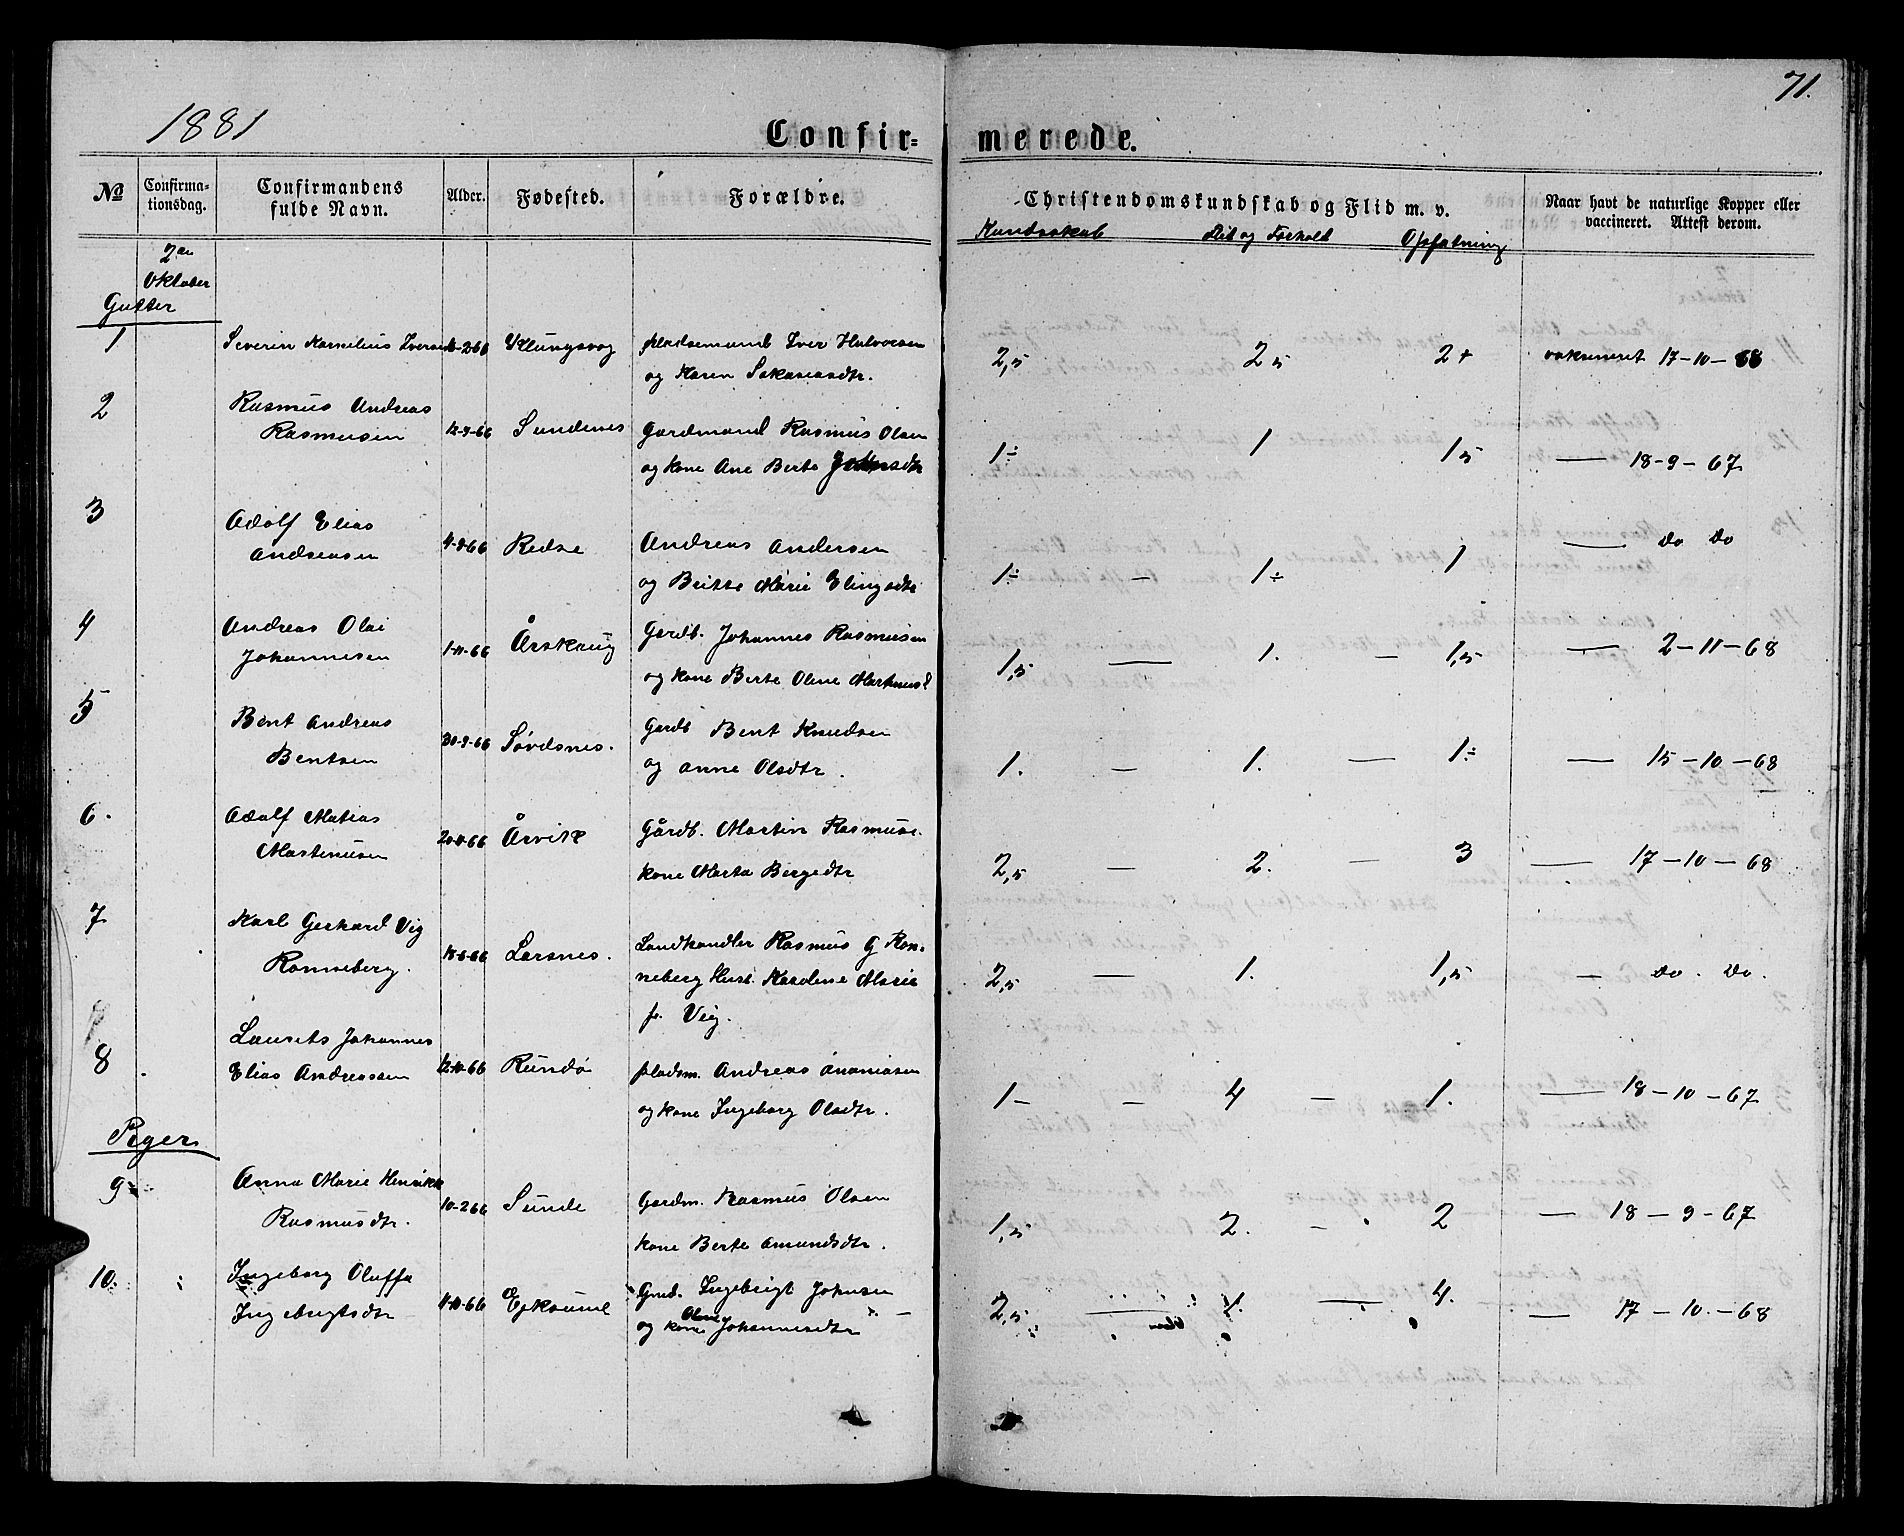 71.
1881
Confir= merede.
№ Confirma- tionsdag. Confirmandens fulde Navn. Alder. Fødested. Forældre. Christendomskundskab og Flid m. v. Naar havt de naturlige Kopper eller vaccineret. Attest derom.
Kundsskab Flid og Forhold Opfatning
2en
Oktober
Gutter
1 Severin Kornelius Iversen 2-66 Klungsvog pladsemand Iver Halvorsen 2,5 2 5 2+ vaksineret 17-10-68
og Karen Sakariasdtr.
2 Rasmus Andreas
Rasmusen 12-9-66 Sundenes Gardmand Rasmus Olsen 1÷ 1 1 5 — 18-9-67
og kone Ane Berte
3 Adolf Elias
Andreasen 4-8-66 Redse Andreas Andersen 1÷ — 1÷ 1 — do do
og Britte Marie Elingsdtr
4 Andreas Olai
Johannesen 1-11-66 Årskoug Gardb. Johannes Rasmusen 1,5 — 1. — 1,5 — 2-11-68
og kone Berte Oline Martinusd
5 Bent Andreas
Bentsen 30-9-66 Sørdsnes. Gardb Bent Knudsen 1. — 1. — 1÷ — 15-10-68
og Anne Olsdtr.
6. Adolf Matias
Martinusen 66 Årvik Gårdb. Martin Rasmuse. 2,5 — 2. — 3 — 17-10-68
kone Marta Bergedtr
7 Karl Gerhard Vig
Ronneberg. 66 Larsnes. Landhandler Rasmus G Ron- 2,5 — 1. 1,5 — do. do.
neberg Hust. Karoline Marie
f. Vig.
8 Laurits Johannes
Elias Andreassen 12-10-66 Rundø pladsm. Andreas Ananiasen 1- — 4 — 1. — 18-10-67
og kone Ingeborg Olsdtr.
Piger
9 Anna Marie Henrikke
Rasmusdtr. 10-2-66 Sunde Gardm. Rasmus Olsen 1,5 2. — 2 — 18-9-67
kone Berte Amundsdtr.
10. Ingeborg Oluffa
Ingebrigtsdtr 66 Ejksund Gmd. Ingebrigt Johnsen 2,5 4. — 4. — 17-10-68
og kone Oline Johannesdtr